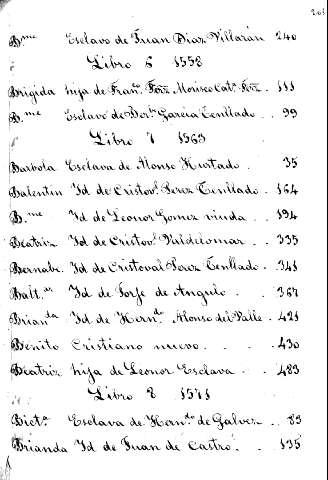 201
B.me Esclavo de Juan Diaz Villarán 240
Libro 6 1558
Brigida hija de Fran.co Frrz. Morisco Cat.a Frrz. 111
B.me Esclavo de Bar.me Garcia Tenllado . 99
Libro 7 1563
Barbola Esclava de Alonso Hurtado . 35
Balentin Id de Cristov.l Perez Tenllado . 164
B.me Id de Leonor Gomez viuda . . 194
Beatriz Id de Cristov.l Valdelomar . . 335
Bernabe. Id de Cristoval Perez Tenllado . 341
Balt.ar Id de Jorje de Angulo . . 367
Brianda Id de Hern.do Alonso del Valle . 421
Benito Cristiano nuevo . . . 430
Beatriz hija de Leonor Esclava . . 483
Libro 8 1571
Esclava de Hern.do de Galvez . . 83
Brianda Id de Juan de Castro . . 135